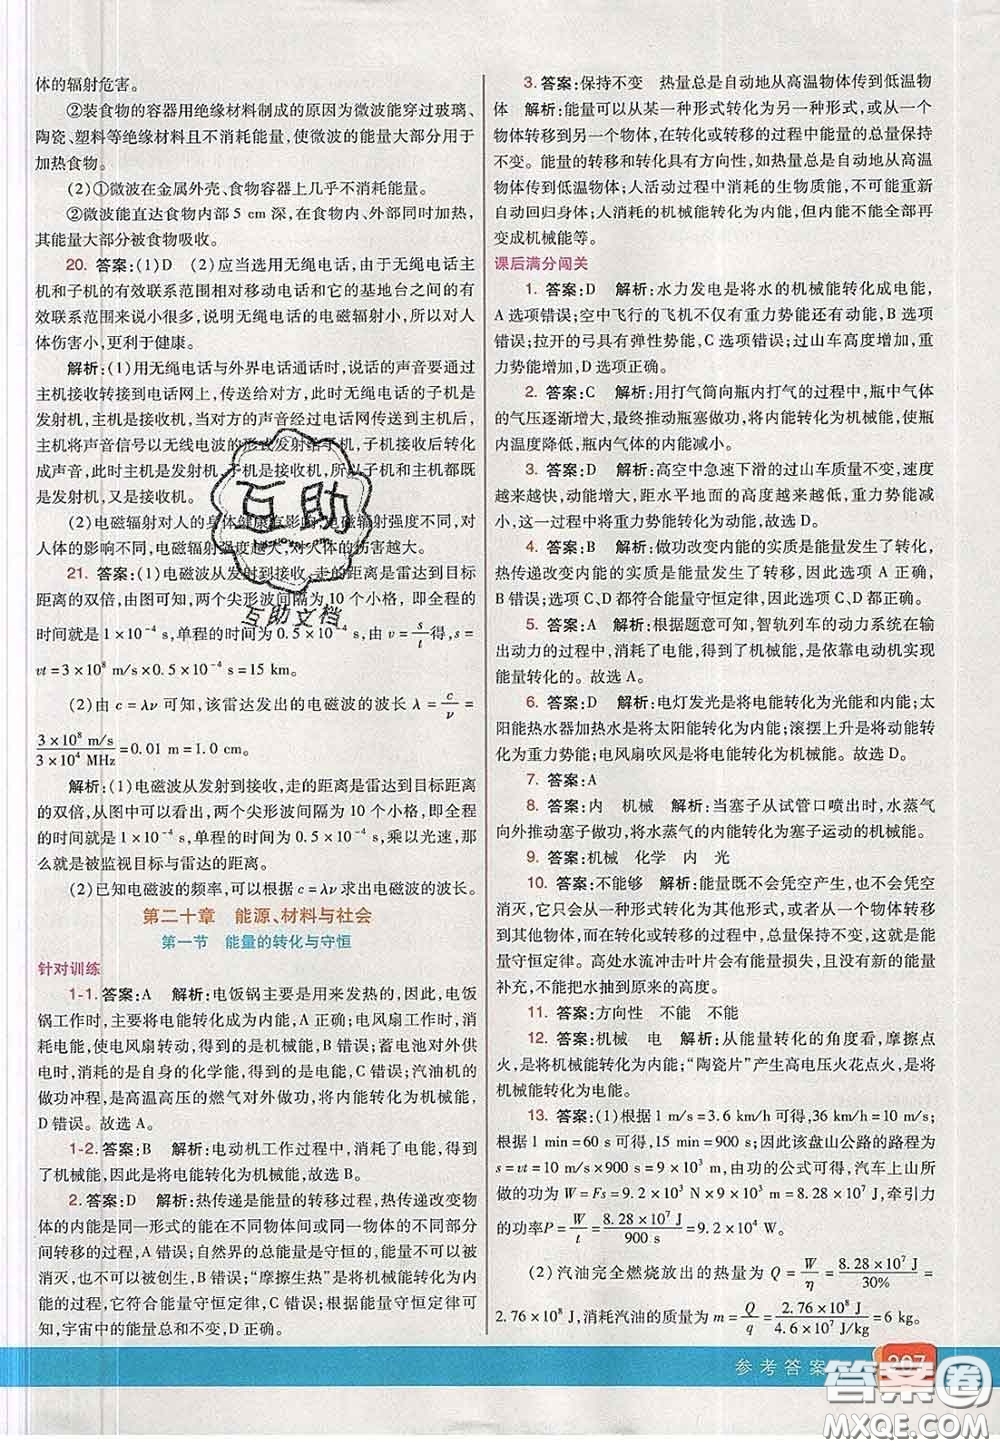 体的辐射危害。
②装食物的容器用绝缘材料制成的原因为微波能穿过玻璃、
陶瓷、塑料等绝缘材料且不消耗能量,使微波的能量大部分用于
加热食物。
(2)①微波在金属外壳、食物容器上几乎不消耗能量。
②微波能直达食物内部 5 cm 深,在内部、外部同时加热,
其能量大部分被食物吸收。
20. 答案:(1)D (2)应当选用无绳电话,由于无绳电话主
机和子机的有效联系范围相对移动电话和它的基地台之间的有
效联系范围小很多,说明无绳电话的电磁辐射小,所以对人
体伤害小,更利于健康。
解析:(1)用无绳电话与外界电话通话时,说话的声音要通过
主机接收转接到电话网上,传送给对方,此时无绳电话的子机是
发射机,主机是接收机。当对方的声音经过电话网传送到主机后,
主机将声音信号以无线电波的形式发射给子机,子机接收后转化
成声音,此时主机是发射机,子机是接收机。所以子机和主机都既是
发射机,又是接收机。
(2)电磁辐射对人的身体健康有影响,电磁辐射强度不同,对
人体的影响不同,电磁辐射强度越大,对人体的伤害越大。
21. 答案:(1)电磁波从发射到接收,走的距离是雷达到目标
距离的双倍,由图可知,两个尖形波间隔为 10 个小格,即全程的
时间就是 1×10⁻⁴ s,单程的时间为 0.5×10⁻⁴ s,由 v=s/t得,s=
vt=3×10⁸ m/s×0.5×10⁻⁴ s=15 km。
(2)由 c=λν 可知,该雷达发出的电磁波的波长 λ=c/ν=
3×10⁸ m/s/3×10⁴ MHz=0.01 m=1.0 cm。
解析:(1)电磁波从发射到接收,走的距离是雷达到目标距离
的双倍,从图中可以看出,两个尖形波间隔为 10 个小格,即全程
的时间就是 1×10⁻⁴ s,单程的时间为 0.5×10⁻⁴ s,乘以光速,那
么就是被监视目标与雷达的距离。
(2)已知电磁波的频率,可以根据 c=λν 求出电磁波的波长。
第二十章 能源、材料与社会
第一节 能量的转化与守恒
针对训练
1-1. 答案:A 解析:电饭锅主要是用来发热的,因此,电饭
锅工作时,主要将电能转化成为内能,A 正确;电风扇工作时,消
耗电能,使电风扇转动,得到的是机械能,B 错误;蓄电池向外供电
时,消耗的是自身的化学能,得到的是电能,C 错误;汽油机的
做功冲程,是高温高压的燃气对外做功,将内能转化为机械能,
D 错误。故选 A。
1-2. 答案:B 解析:电动机工作过程中,消耗了电能,得到
了机械能,因此是将电能转化为机械能,故选 B。
2. 答案:D 解析:热传递是能量的转移过程,热传递改变物
体的内能是同一形式的能在不同物体间或同一物体的不同部分
间转移的过程,A 错误;自然界的总能量是守恒的,能量不可以被
消灭,也不可以被创生,B 错误;“摩擦生热”是将机械能转化为内
能的过程,它符合能量守恒定律,C 错误;根据能量守恒定律可
知,宇宙中的能量总和不变,D 正确。
3. 答案:保持不变 热量总是自动地从高温物体传到低温物
体 解析:能量可以从某一种形式转化为另一种形式,或从一个
物体转移到另一个物体,在转化或转移的过程中能量的总量保持
不变。能量的转移和转化具有方向性,如热量是自动地从高温
物体传到低温物体;人活动过程中消耗的生物质能,不可能重新
自动回归身体;人消耗的机械能转化为内能,但内能不能全部再
变成机械能等。
课后满分闯关
1. 答案:D 解析:水力发电是将水的机械能转化成电能,
A 选项错误;空中飞行的飞机不仅有重力势能还有动能,B 选项
错误;拉开的弓具有弹性势能,C 选项错误;过山车高度增加,重
力势能增加,D 选项正确。
2. 答案:C 解析:用打气筒向瓶内打气的过程中,瓶中气体
的气压逐渐增大,最终推动瓶塞做功,将内能转化为机械能,使瓶
内温度降低,瓶内气体的内能减小。
3. 答案:D 解析:高空中急速下滑的过山车质量不变,速度
越来越快,动能增大,距水平地面的高度越来越低,重力势能减
小,这一过程中将重力势能转化为动能,故选 D。
4. 答案:B 解析:做功改变内能的实质是能量发生了转化,
热传递改变内能的实质是能量发生了转移,因此选项 A 正确,
B 错误;选项 C、D 都符合能量守恒定律,所以选项 C、D 正确。
5. 答案:A 解析:根据题意可知,智轨列车的动力系统在输
出动力的过程中,消耗了电能,得到了机械能,是依靠电动机实现
能量转化的。故选 A。
6. 答案:D 解析:电灯发光是将电能转化为光能和内能;太
阳能热水器加热水是将太阳能转化为内能;滚摆上升是将动能转
化为重力势能;电风扇吹风是将电能转化为机械能。故选 D。
7. 答案:A
8. 答案:内 机械 解析:当塞子从试管口喷出时,水蒸气
向外推动塞子做功,将水蒸气的内能转化为塞子运动的机械能。
9. 答案:机械 化学 内 光
10. 答案:不能够 解析:能量既不会凭空产生,也不会凭空
消灭,它只会从一种形式转化为其他形式,或者从一个物体转移
到另一个物体,而在转化和转移的过程中,能量的总量不变,这就是
能量守恒定律。高处水流冲击叶片会有能量损失,且没有新的能量
补充,不能把水抽到原来的高度。
11. 答案:方向性 不能 不能
12. 答案:机械 电 解析:从能量转化的角度看,摩擦点
火,是将机械能转化为内能;“陶瓷片”产生高电压火花点火,是将
机械能转化为电能。
13. 答案:(1)根据 1 m/s=3.6 km/h 可得,36 km/h=10 m/s;
根据 1 min=60 s 可得,15 min=900 s;因此该盘山公路的路程为
s=vt=10 m/s×900 s=9 000 m,由功的公式可得,汽车上山所
做的功为 W=Fs=9.2×10³ N×9×10³ m=8.28×10⁷ J,牵引力
的功率P=W/t=8.28×10⁷ J/900 s=9.2×10⁴ W。
(2)汽油完全燃烧放出的热量为 Q=W/η=8.28×10⁷ J/30%=
2.76×10⁸ J,消耗汽油的质量为 m=Q/q=2.76×10⁸ J/4.6×10⁷ J/kg=6 kg。
互助
互助文档
参考答案
207
答案圈
MXQE.COM